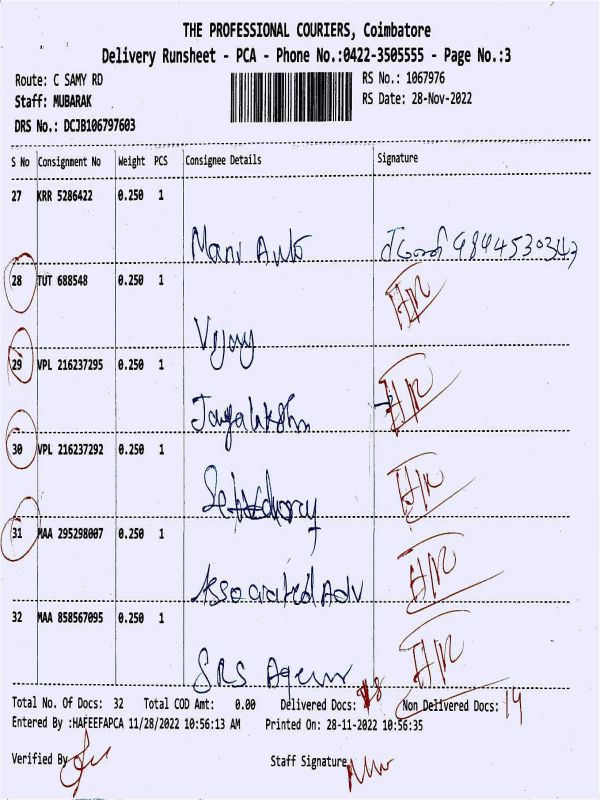 THE PROFESSIONAL COURIERS, Coimbatore
Delivery Runsheet - PCA - Phone No.:0422-3505555 - Page No.:3
Route: C SAMY RD
RS No.: 1067976
Staff: MUBARAK
RS Date: 28-Nov-2022
DRS No.: DCJB106797603
S No Consignment No Weight PCS Consignee Details Signature
27 KRR 5286422 0.250 1
Mani Auto
28 TUT 688548 0.250 1
Vijay
29 VPL 216237295 0.250 1
30 VPL 216237292 0.250 1
31 MAA 295298007 0.250 1
Associated Adv
32 MAA 858567095 0.250 1
SRS
Total No. Of Docs: 32 Total COD Amt: 0.00 Delivered Docs: 18 Non Delivered Docs: 14
Entered By :HAFEEFAPCA 11/28/2022 10:56:13 AM Printed On: 28-11-2022 10:56:35
Verified By
Staff Signature